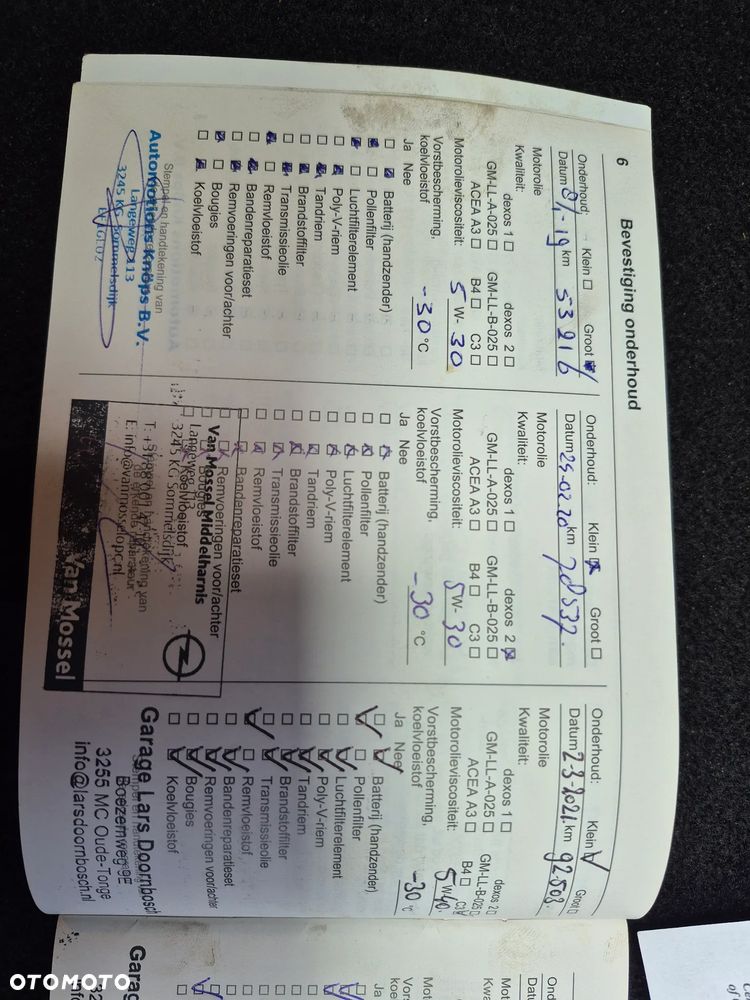 6
Bevestiging onderhoud
Onderhoud: Klein Groot
Datum 8/1-19 km 53216
Motorolie
Kwaliteit: dexos 1 dexos 2
GM-LL-A-025 GM-LL-B-025
ACEA A3 B4 C3
Motorolieviscositeit: 5W-30
Vorstbescherming,
koelvloeistof -30 °C
Ja Nee
Batterij (handzender)
Pollenfilter
Luchtfilterelement
Poly-V-riem
Tandriem
Brandstoffilter
Transmissieolie
Remvloeistof
Bandenreparatieset
Remvoeringen voor/achter
Bougies
Koelvloeistof
Stempel en handtekening van
Automotions Knöps B.V.
Langeweg 113
3245 KG Sommelsdijk
Onderhoud: Klein Groot
Datum 25-02-20 km 78537.
Motorolie
Kwaliteit: dexos 1 dexos 2
GM-LL-A-025 GM-LL-B-025
ACEA A3 B4 C3
Motorolieviscositeit: 5W-30
Vorstbescherming,
koelvloeistof -30 °C
Ja Nee
Batterij (handzender)
Pollenfilter
Luchtfilterelement
Poly-V-riem
Tandriem
Brandstoffilter
Transmissieolie
Remvloeistof
Bandenreparatieset
Remvoeringen voor/achter
Van Mossel Middelharnis
Langeweg 113
Koelvloeistof
3245 KG Sommelsdijk
Van Mossel
Onderhoud: Klein Groot
Datum 2-3-2021. km 92503.
Motorolie
Kwaliteit: dexos 1 dexos 2
GM-LL-A-025 GM-LL-B-025
ACEA A3 B4 C3
Motorolieviscositeit: 5W40.
Vorstbescherming,
koelvloeistof -30 °C
Ja Nee
Batterij (handzender)
Pollenfilter
Luchtfilterelement
Poly-V-riem
Tandriem
Brandstoffilter
Transmissieolie
Remvloeistof
Bandenreparatieset
Remvoeringen voor/achter
Bougies
Koelvloeistof
Garage Lars Doornbosch
Boezemweg 9E
3255 MC Oude-Tonge
info@larsdoornbosch.nl
OTOMOTO